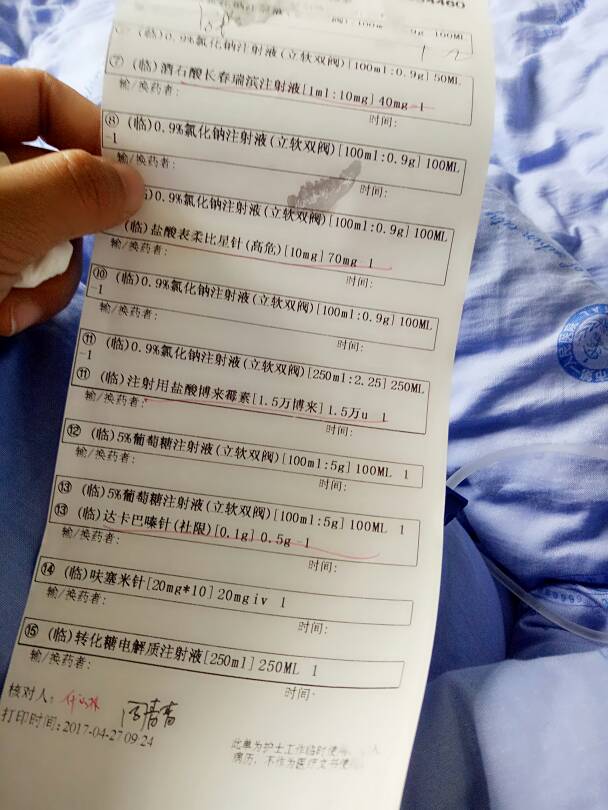 4460
100ML
⑦ (临)0.9%氯化钠注射液(立软双阀)[100ml:0.9g] 50ML
⑦ (临)酒石酸长春瑞滨注射液[1ml:10mg] 40mg 1
输/换药者: 时间:
⑧ (临)0.9%氯化钠注射液(立软双阀)[100ml:0.9g] 100ML
-1
输/换药者: 时间:
(临)0.9%氯化钠注射液(立软双阀)[100ml:0.9g] 100ML
(临)盐酸表柔比星针(高危)[10mg] 70mg 1
输/换药者: 时间:
⑩ (临)0.9%氯化钠注射液(立软双阀)[100ml:0.9g] 100ML
-1
输/换药者: 时间:
⑪ (临)0.9%氯化钠注射液(立软双阀)[250ml:2.25] 250ML
-1
⑪ (临)注射用盐酸博来霉素[1.5万博来] 1.5万u 1
输/换药者: 时间:
⑫ (临)5%葡萄糖注射液(立软双阀)[100ml:5g] 100ML 1
输/换药者: 时间:
⑬ (临)5%葡萄糖注射液(立软双阀)[100ml:5g] 100ML 1
⑬ (临)达卡巴嗪针(杜限)[0.1g] 0.5g 1
输/换药者: 时间:
⑭ (临)呋塞米针[20mg*10] 20mg iv 1
输/换药者: 时间:
⑮ (临)转化糖电解质注射液[250ml] 250ML 1
输/换药者: 时间:
核对人:
打印时间:2017-04-27 09:24
此单为护士工作临时使
病历，不作为医疗文书使